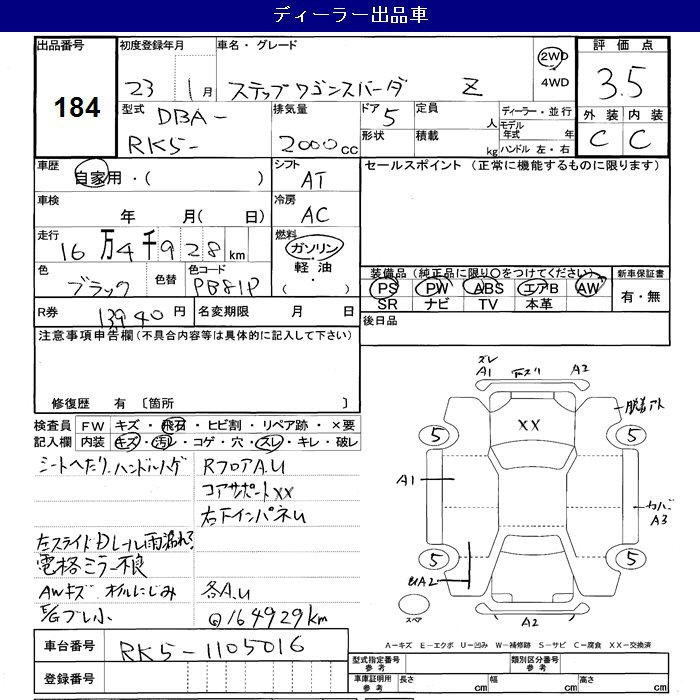 ディーラー出品車
出品番号
184
初度登録年月
23 1 月
車名・グレード
ステップワゴンスパーダ Z
2WD
4WD
評価点
3.5
外装 内装
C C
型式
DBA-
RK5-
排気量
2000 cc
ドア
5
形状
定員
人
積載
kg
ディーラー・並行
モデル年式 年
ハンドル 左・右
車歴
自家用・( )
シフト
AT
セールスポイント (正常に機能するものに限ります)
車検
年 月( 日)
冷房
AC
走行
16 万 4 千 9 2 8 km
燃料
ガソリン・
軽油・
( )
色
ブラック
色替
色コード
PB81P
装備品(純正品に限り○をつけてください)
PS PW ABS エアB AW
SR ナビ TV 本革
新車保証書
有・無
R券
13940 円
名変期限 月 日
後日品
注意事項申告欄(不具合内容等は具体的に記入して下さい)
修復歴 有 〔箇所 〕
検査員記入欄
FW キズ・飛石・ヒビ割・リペア跡・×要
内装 キズ・汚レ・コゲ・穴・スレ・キレ・破レ
シートヘたり、ハンドルハゲ
RフロアA.U
コアサポートXX
右下インパネU
左スライドDレール雨漏れ?
電格ミラー不良
AWキズ オイルにじみ 各A.U
E/Gブレ小 @164929km
ズレ
A1 下ズリ A2
XX
脱着アト
5 5
A1
カバー
A3
5 5
UA2
スペア
A2
A－キズ E－エクボ U－凹み W－補修跡 S－サビ C－腐食 XX－交換済
車台番号
RK5-1105016
登録番号
型式指定番号 参考
類別区分番号 参考
車庫証明用 参考
長さ cm
幅 cm
高さ cm